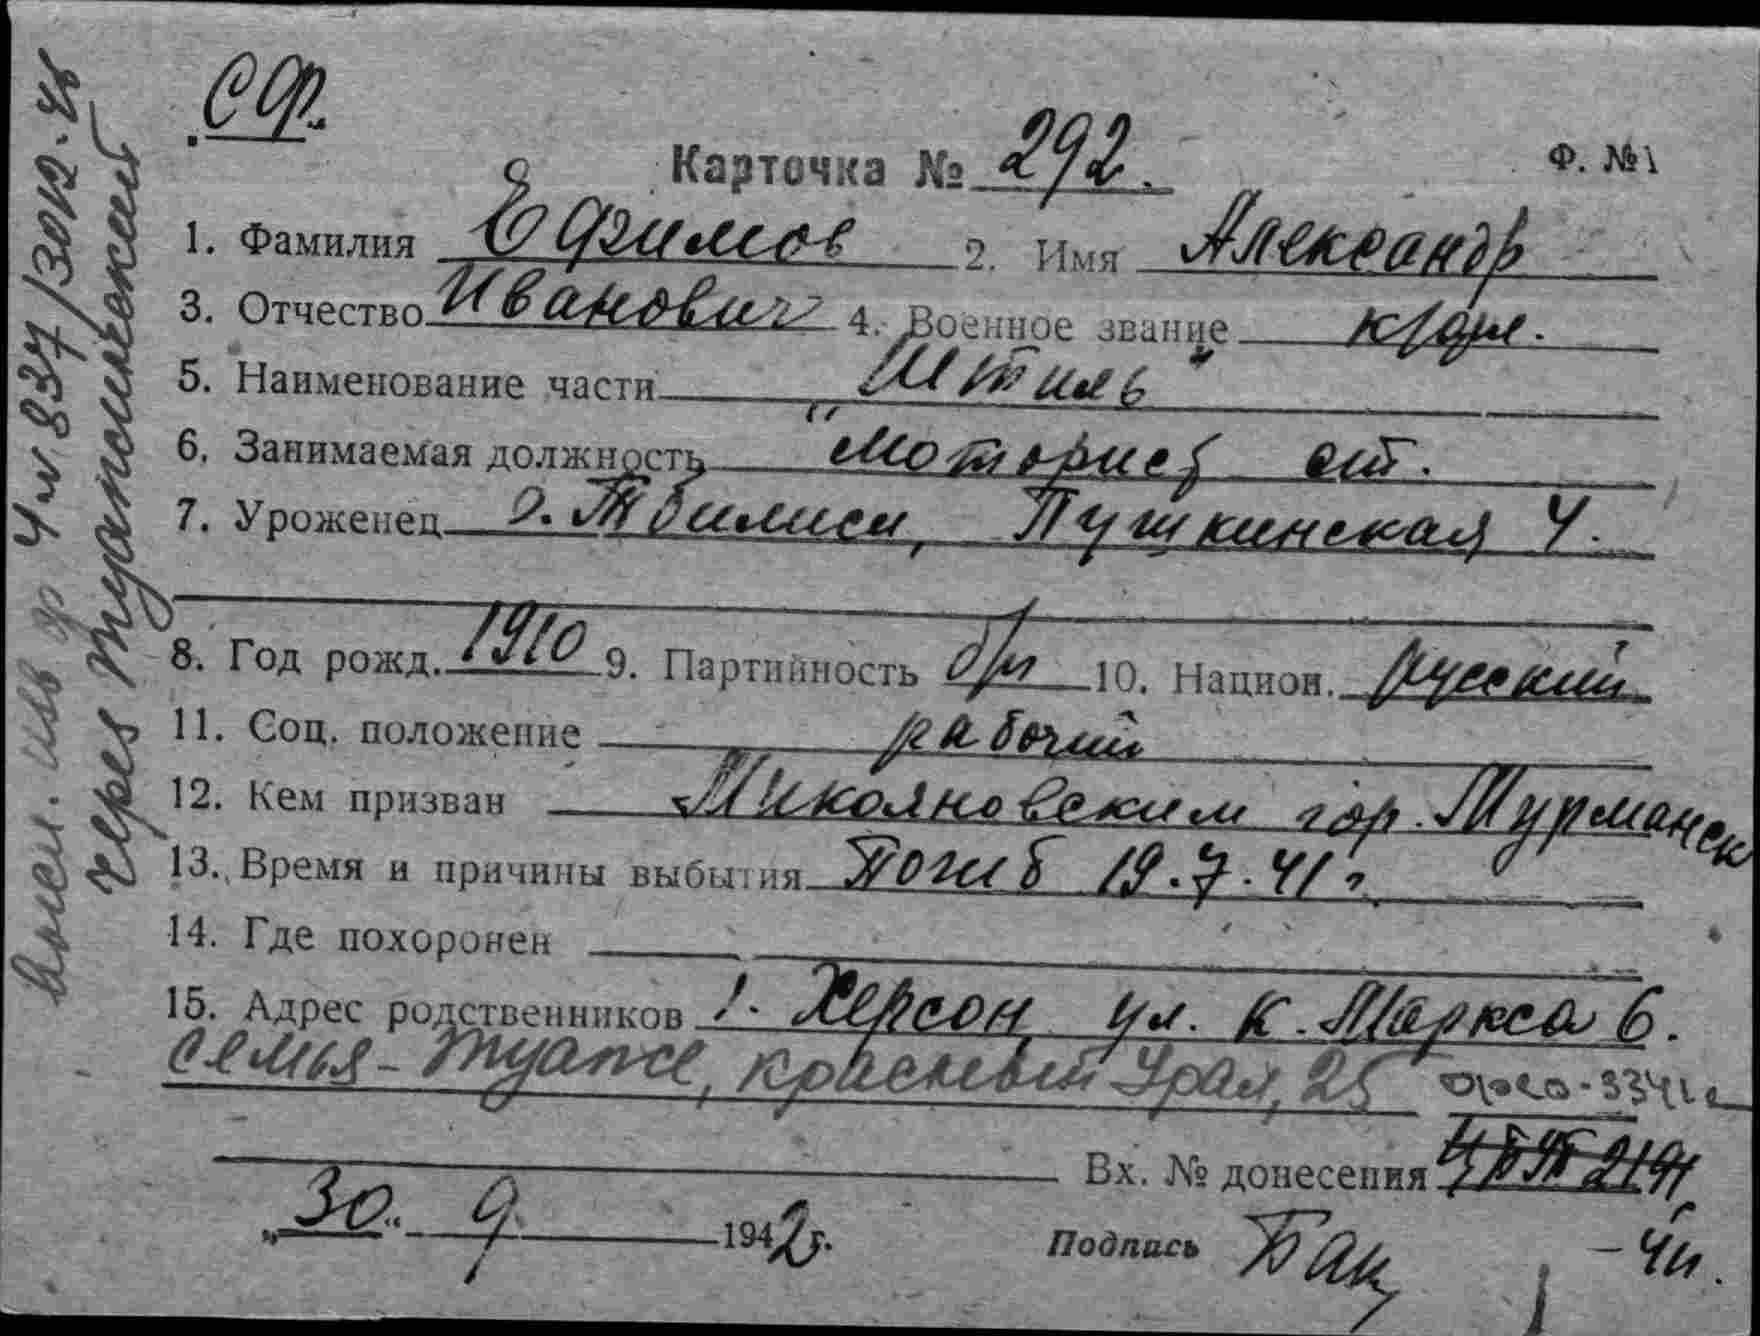 СФ.
Карточка № 292.
Ф. №1
1. Фамилия Ефимов 2. Имя Александр
3. Отчество Иванович 4. Военное звание к/фл.
5. Наименование части "Штиль"
6. Занимаемая должность моторист ст.
7. Уроженец г. Тбилиси, Пушкинская 4.
8. Год рожд. 1910 9. Партийность б/п 10. Национ. русский
11. Соц. положение рабочий
12. Кем призван Микояновским гор. Мурманск
13. Время и причины выбытия Погиб 19.7.41 г.
14. Где похоронен
15. Адрес родственников г. Херсон ул. К. Маркса 6.
семья - Туапсе, Красный Урал, 25
Вх. № донесения 2191
"30" 9 1942 г. Подпись Бак
через Туапсинский